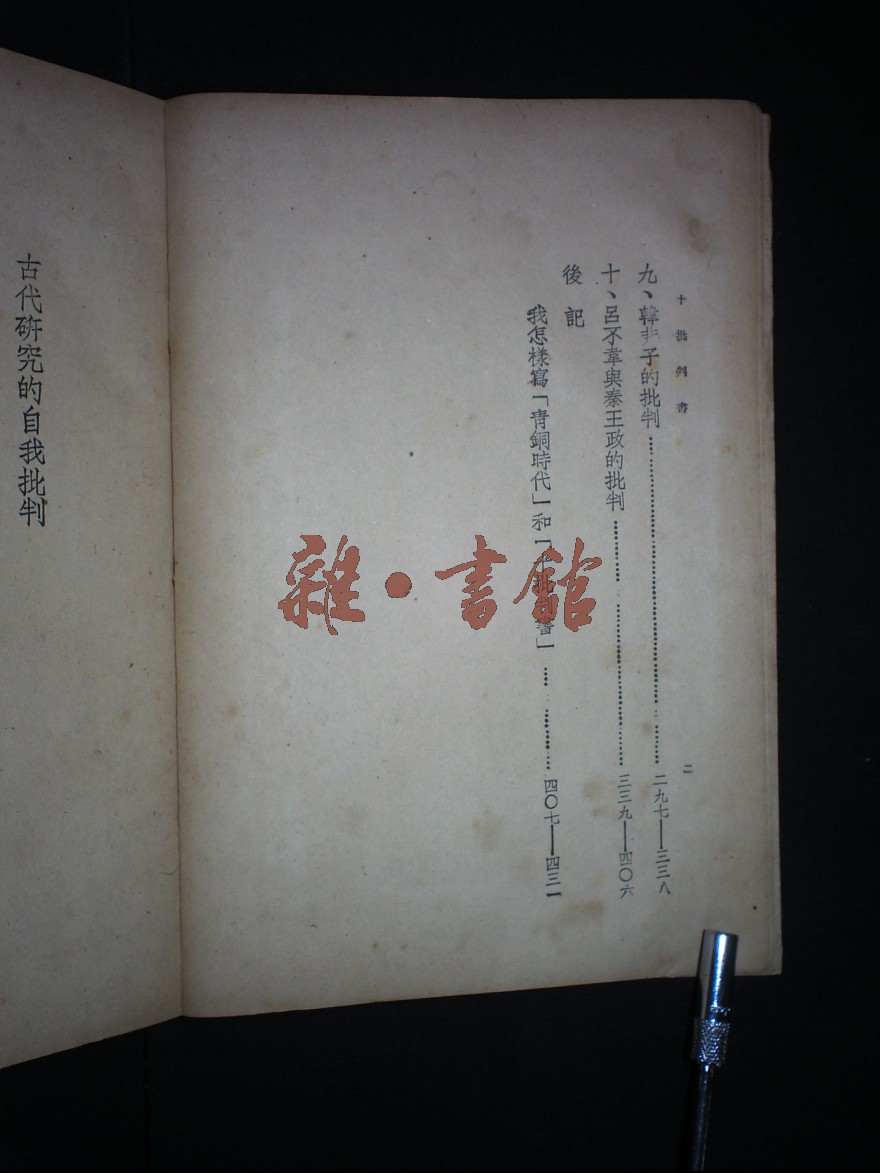 十批判書
二
九、韓非子的批判……二九七——三三八
十、呂不韋與秦王政的批判……三三九——四〇六
後記
我怎樣寫「青銅時代」和「十批判書」……四〇七——四三一
古代研究的自我批判
雜·書館